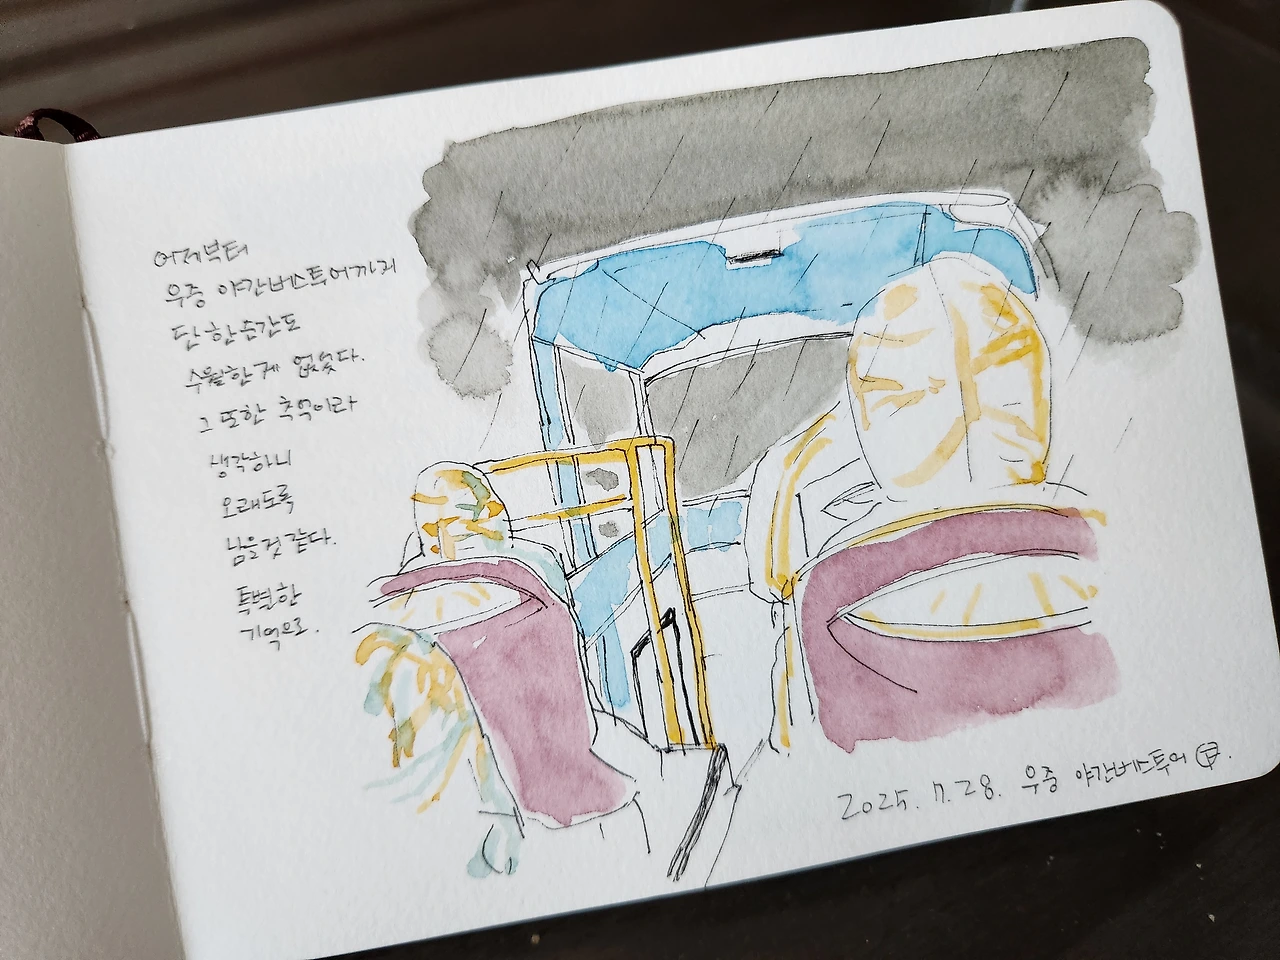 어제부터
우중 야간버스투어까지
단 한순간도
수월한게 없었다.
그 또한 추억이라
생각하니
오래도록
남을것 같다.
특별한
기억으로.
2025. 7. 28. 우중 야간버스투어